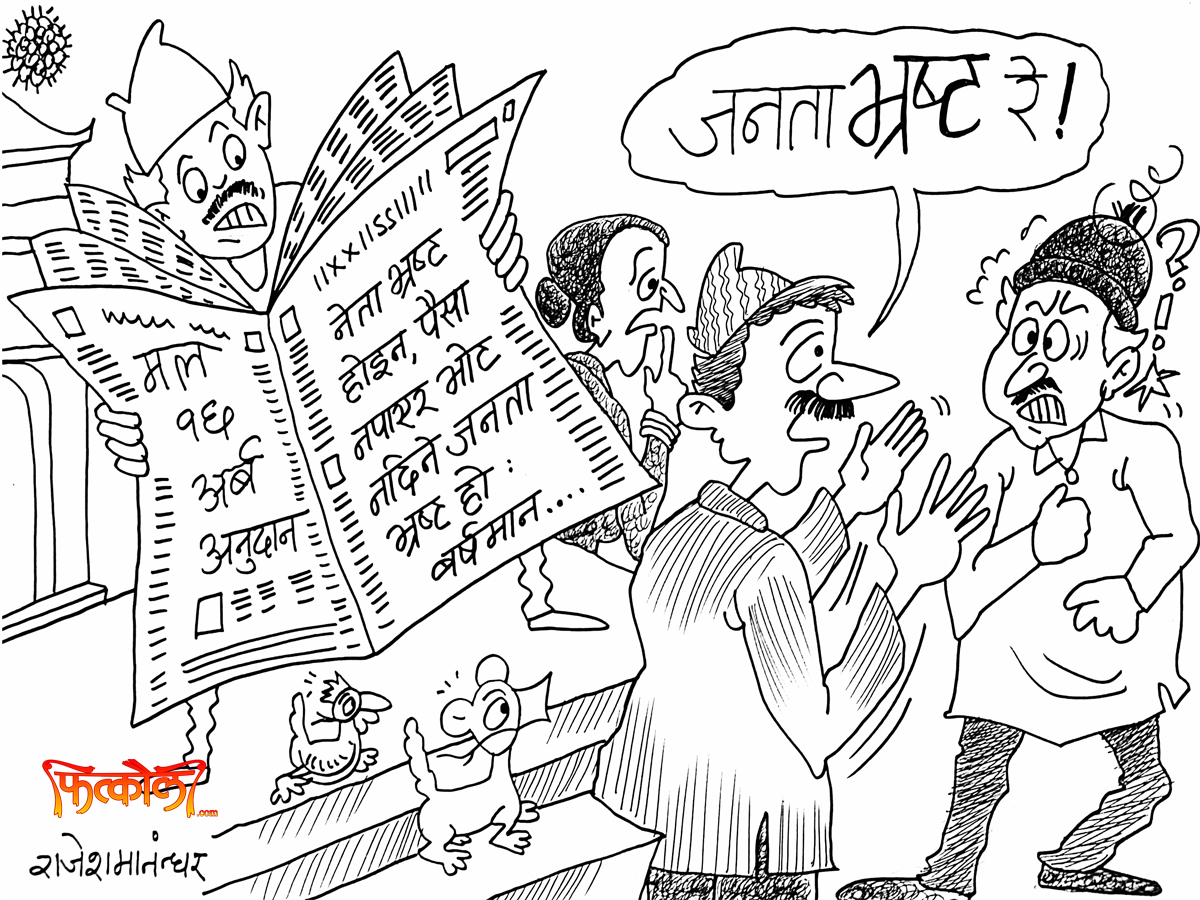 जनता भ्रष्ट रे!
मल
१६
अर्ब
अनुदान
नेता भ्रष्ट
होइन, पैसा
नपाएर भोट
नदिने जनता
भ्रष्ट हो :
बर्षमान...
फित्कौली
.com
राजेशमानन्धर